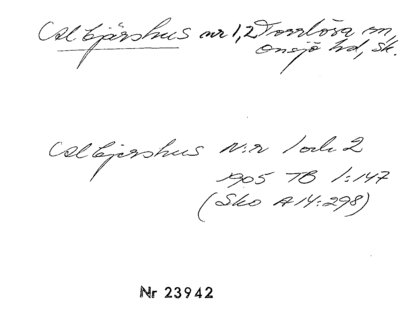 Allbjärshus nr 1,2 Torrlösa sn,
Onsjö hd, Sk.
Allbjershus N:r 1 och 2
1905 TB 1:147
(Sko A14:298)
Nr 23942